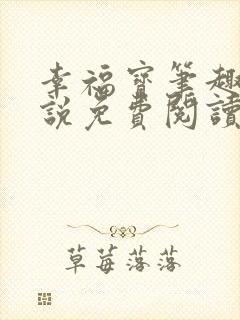 幸福寶筆趣
說免費閱讀
草莓落落